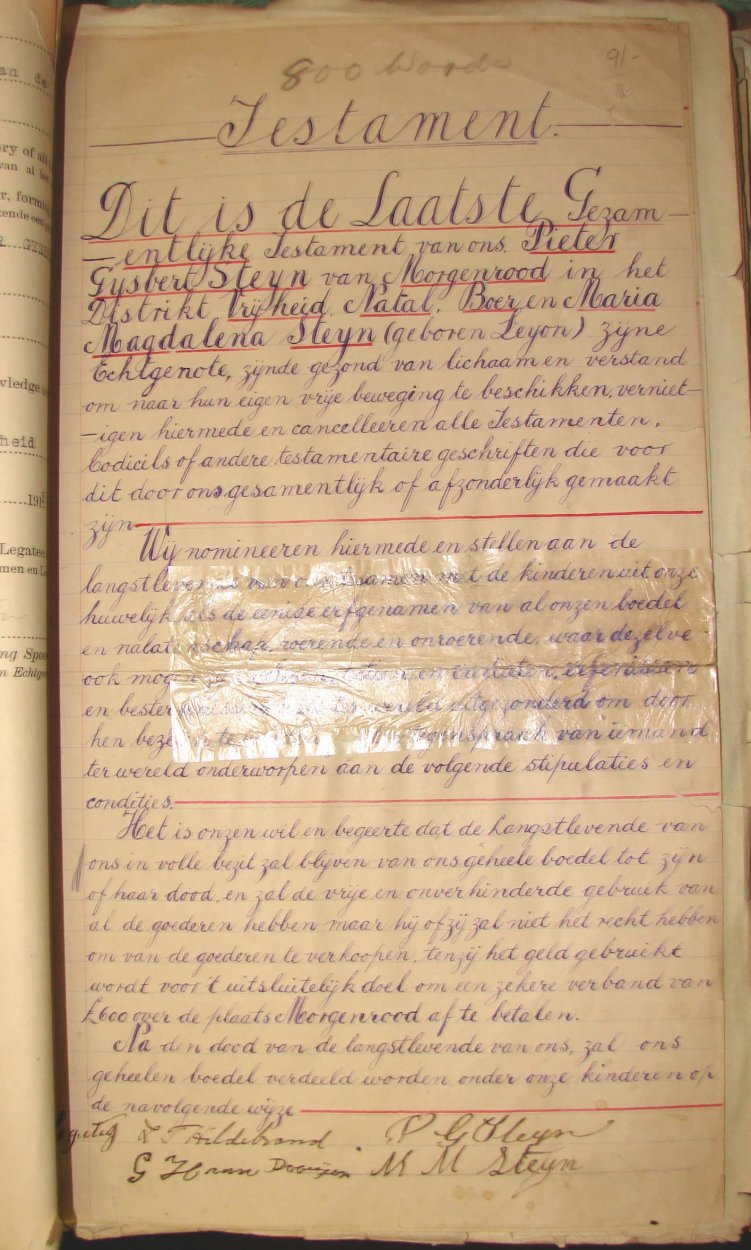 800 Words
9/-
Testament.
Dit is de Laatste Gezam-
-entlijke Testament van ons. Pieter
Gysbert Steyn van Morgenrood in het
Distrikt Vrijheid, Natal, Boer en Maria
Magdalena Steyn (geboren Leyon) zijne
Echtgenote, zijnde gezond van lichaam en verstand
om naar hun eigen vrije beweging te beschikken, verniet-
-igen hiermede en cancelleeren alle Testamenten,
Codicils of andere testamentaire geschriften die voor
dit door ons gesamentlijk of afzonderlijk gemaakt
zijn.
Wij nomineeren hiermede en stellen aan de
langstlevende van ons samen met de kinderen uit onze
huwelijk als de eenige erfgenamen van al onzen boedel
en nalatenschap, roerende en onroerende, waar dezelve
ook mogen en erfenissen
en uitgezonderd om door
hen van iemand
ter wereld onderworpen aan de volgende stipulaties en
condities.
Het is onzen wil en begeerte dat de Langstlevende van
ons in volle bezit zal blijven van ons geheele boedel tot zijn
of haar dood, en zal de vrije en onverhinderde gebruik van
al de goederen hebben maar hij of zij zal niet het recht hebben
om van de goederen te verkoopen, tenzij het geld gebruikt
wordt voor 't uitsluitelijk doel om een zekere verband van
£600 over de plaats Morgenrood af te betalen.
Na den dood van de langstlevende van ons, zal ons
geheelen boedel verdeeld worden onder onze kinderen op
de navolgende wijze
Hildebrand. P G Steyn
G M M Steyn